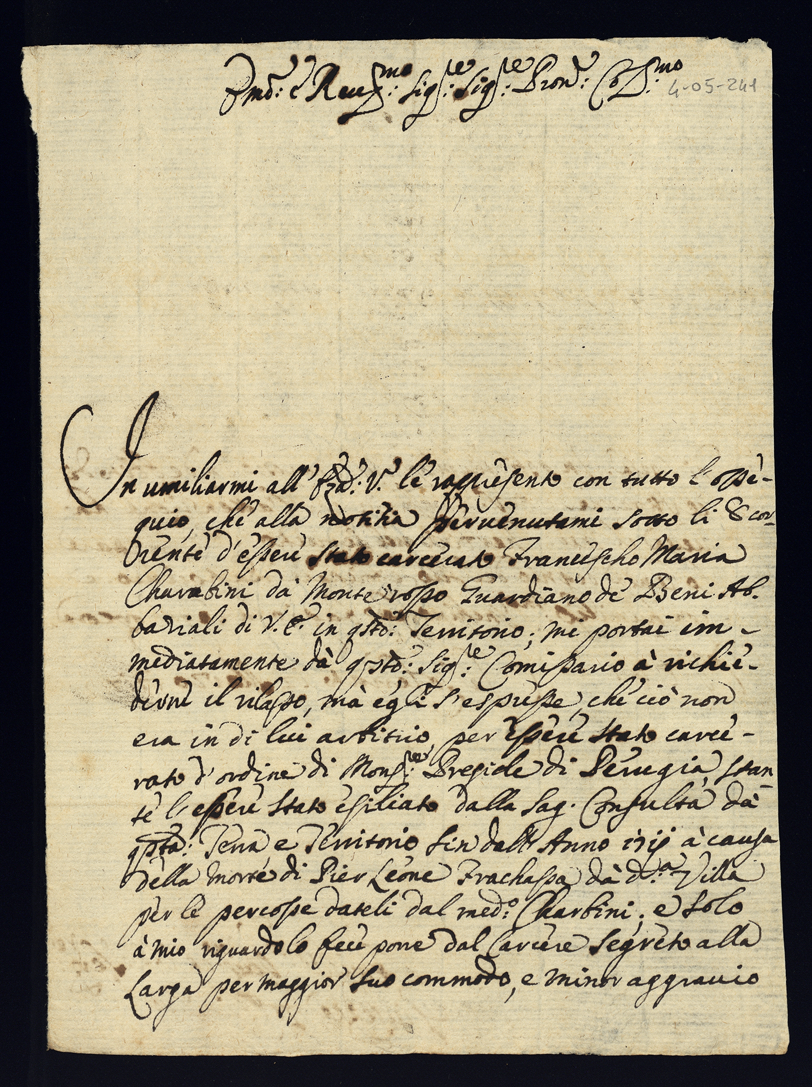 Em̃o: e Reue͠mo: Sig:re Sig:re Pron͠e: Col:mo
4-05-241
In umiliarmi all' Em͠a: V.a le rappresento con tutto l'osse-
quio, che alla notitia pervenutami sotto li 8 cor-
riente d'essere stato carcerato Francescho Maria
Charabini da Monte rosso Guardiano de Beni Ab.
batiali di V. E. in q͠sto: Territorio, mi portai im-
mediatamente dà q͠sto: Sig:re Comissario à richie-
derne il rilasso, mà egli s'espresse, che ciò non
era in di lui arbitrio per essere stato carce-
rato d'ordine di Mons:re Preside di Perugia, stan
te l'essere stato esiliato dalla Sag. Consulta dà
q͠sta: Terra e Territorio sin dall' Anno à causa
della morte di Pier Leone Frachassa dà d:a Villa
per le percosse dateli dal med:o Charbini; e solo
à mio riguardo lo fece porre dal Carcere segreto alla
Larga per maggior suo commodo, e minor aggravio